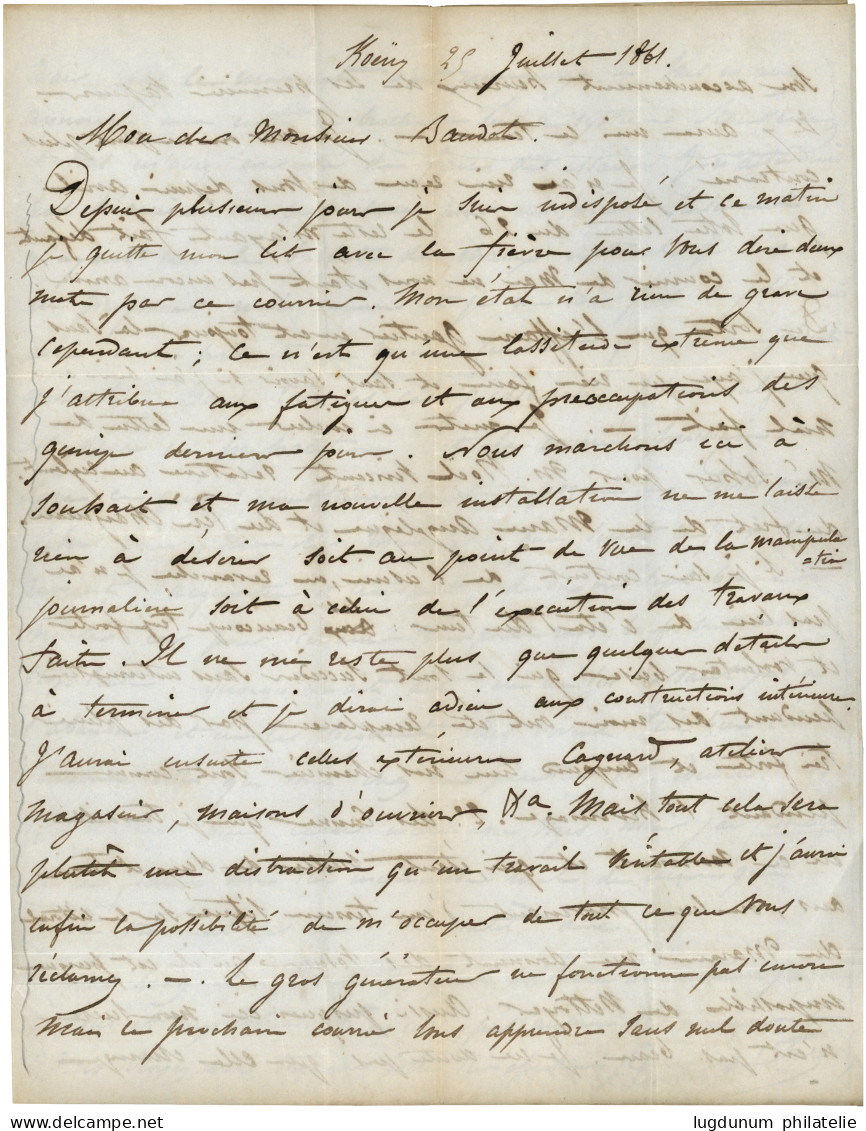 Koëny 25 Juillet 1861.
Mon cher Monsieur Baudot.
Depuis plusieurs jours je suis indisposé et ce matin
je quitte mon lit avec la fièvre pour vous dire deux
mots par ce courrier. Mon état n'a rien de grave
cependant; ce n'est qu'une lassitude extrême que
j'attribue aux fatigues et aux préoccupations des
quinze derniers jours. Nous marchons ici à
souhait et ma nouvelle installation ne me laisse
rien à désirer soit au point de vue de la manipula
-tion
journalière soit à celui de l'exécution des travaux
faits. Il ne me reste plus que quelques détails
à terminer et je dirai adieu aux constructions intérieures.
J'aurai ensuite celles extérieures Cagnard, ateliers
magasins, maisons d'ouvriers, &a. Mais tout cela sera
plutôt une distraction qu'un travail véritable et j'aurai
enfin la possibilité de m'occuper de tout ce que vous
réclamez. — . Le gros générateur ne fonctionne pas encore
mais le prochain courrier vous apprendra sans nul doute
lugdunum philatelie